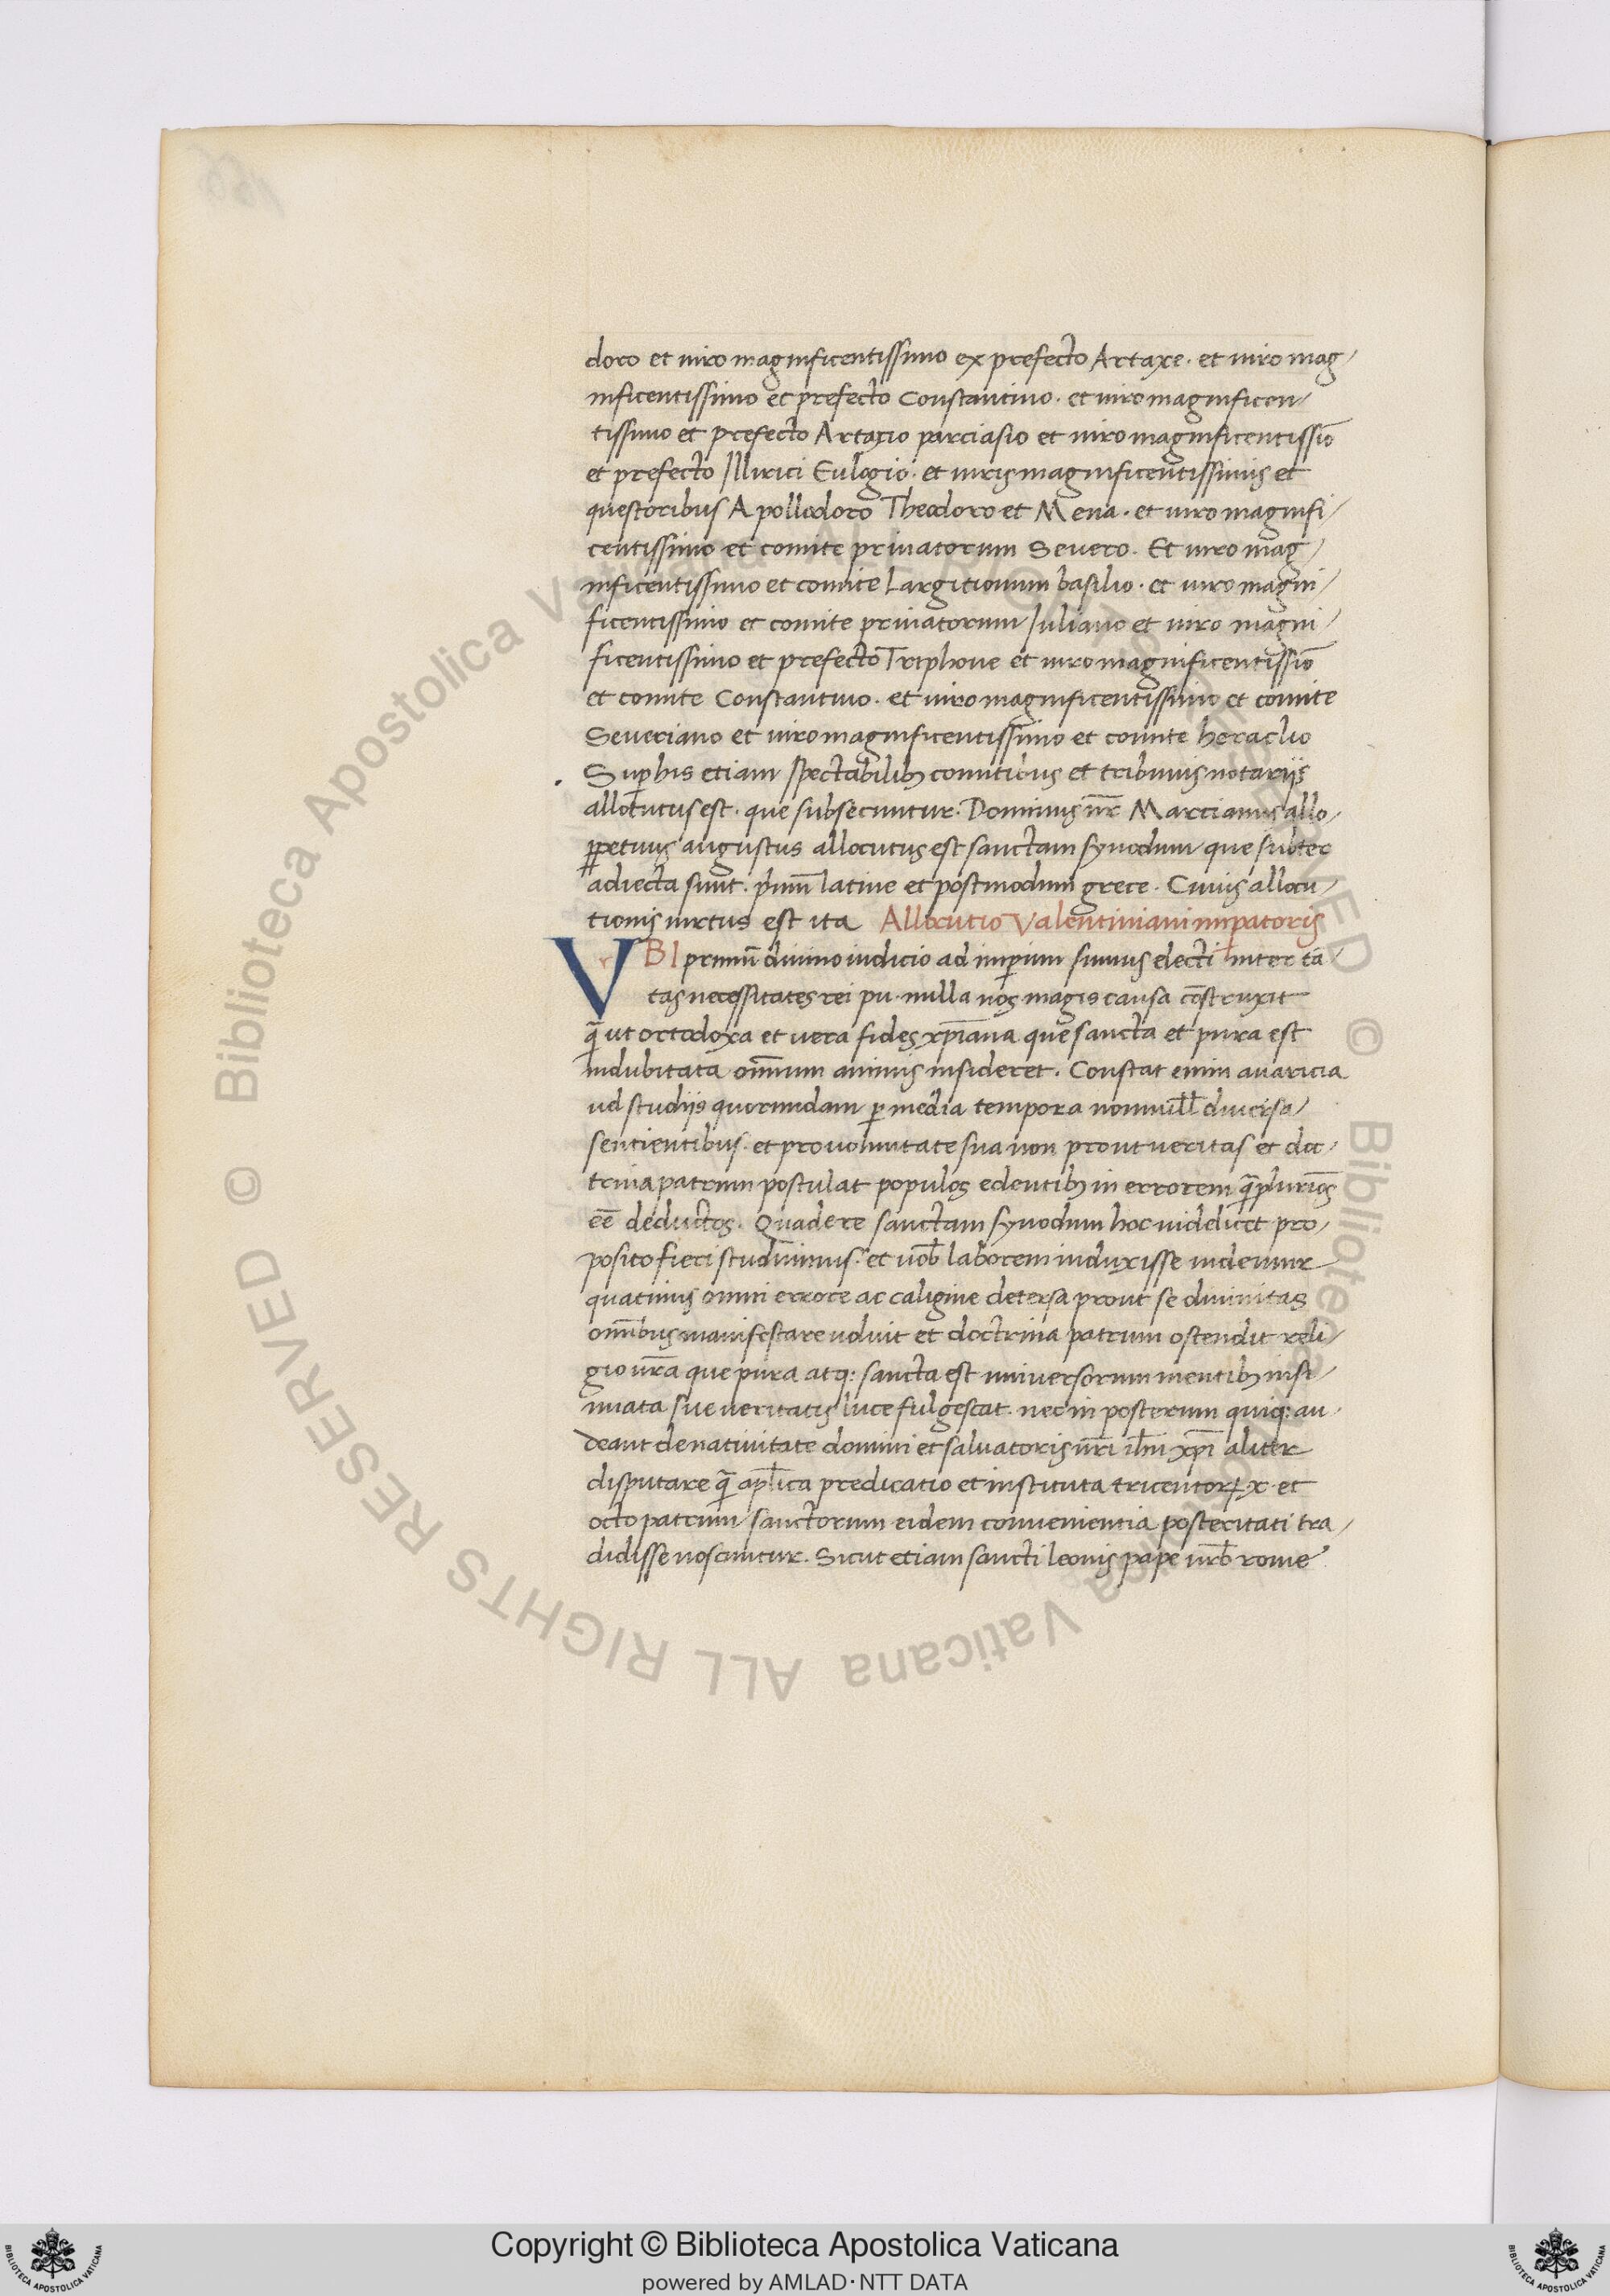 doro et viro magnificentissimo ex prefecto Artaxe · et viro mag/
nificentissimo et prefecto Constantino · et viro magnificen/
tissimo et prefecto Artaxio parciasio et viro magnificentissiō
et prefecto Illirici Eulogio · et viris magnificentissimis et
questoribus Apollodoro Theodoro et Mena · et viro magnifi/
centissimo et comite privatorum Severo · Et viro mag/
nificentissimo et comite Largitionum basilio · et viro magni/
ficentissimo et comite privatorum Iuliano et viro magni/
ficentissimo et prefecto Triphone et viro magnificentissiō
et comite Constantino · et viro magnificentissimo et comite
Severiano et viro magnificentissimo et comite heraclio
Suꝑ his etiam spectabilibꝫ comitibus et tribunis notariis
allocutus est · que subsecuntur · Dominus nr̄ Marcianus allo/
ꝑpetuus augustus allocutus est sanctam synodum que subter
adiecta sunt · pͥmū latine et postmodum grece · Cuius allocu/
tionis virtus est ita Allocutio Valentiniani imꝑatoris
VBI primū divino iudicio ad imꝑium sumus electi inter tā/
tas necessitates rei pu · nulla nos magis causa cōstruxit
qͣ̄ ut ortodoxa et vera fides xp̄iana que sancta et pura est
indubitata om̄ium animis insideret · Constat enim avaricia
vel studiis quorumdam ꝑ media tempora nonnull̄ diversa/
sentientibus · et pro voluntate sua non prout veritas et doc/
trina patrum postulat populos edentibꝫ in errorem qͣ̄plurios̄
eē deductos · Quadere sanctam synodum hoc videlicet pro/
posito fieri studuimus · et vob̄ laborem induxisse videmur
quatinus omni errore ac caligine detersa prout se divinitas
om̄ibus manifestare voluit et doctrina patrum ostendit reli/
gio vr̄a que pura atqꝫ sancta est universorum mentibꝫ insi/
nuata sue veritatis luce fulgescat · nec in posterum quiqꝫ au/
deant de nativitate domini et salvatoris nr̄i ih̄u xp̄i aliter
disputare qͣ̄ apl̄ica predicatio et instituta tricentoꝝ x · et
octo patrum sanctorum eidem convenientia posteritati tra/
didisse noscuntur · Sicut etiam sancti leonis pape urb̄ rome
© Biblioteca Apostolica Vaticana ALL RIGHTS RESERVED © Biblioteca Apostolica Vaticana ALL RIGHTS RESERVED
Copyright © Biblioteca Apostolica Vaticana
powered by AMLAD·NTT DATA
BIBLIOTECA APOSTOLICA VATICANA
BIBLIOTECA APOSTOLICA VATICANA